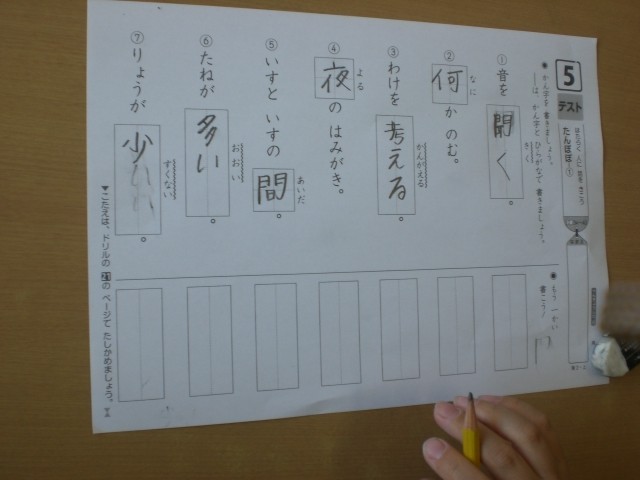 5
テスト
はたらく 人に 話を きこう
たんぽぽ①
● かん字を 書きましょう。
〰は、かん字と ひらがなで 書きましょう。
①音を 聞く。
きく
②何か のむ。
なに
③わけを 考える。
かんがえる
④夜の はみがき。
よる
⑤いすと いすの 間。
あいだ
⑥たねが 多い。
おおい
⑦りょうが 少い。
すくない
● もう 一かい 書こう！
▼こたえは、ドリルの 21の ページで たしかめましょう。